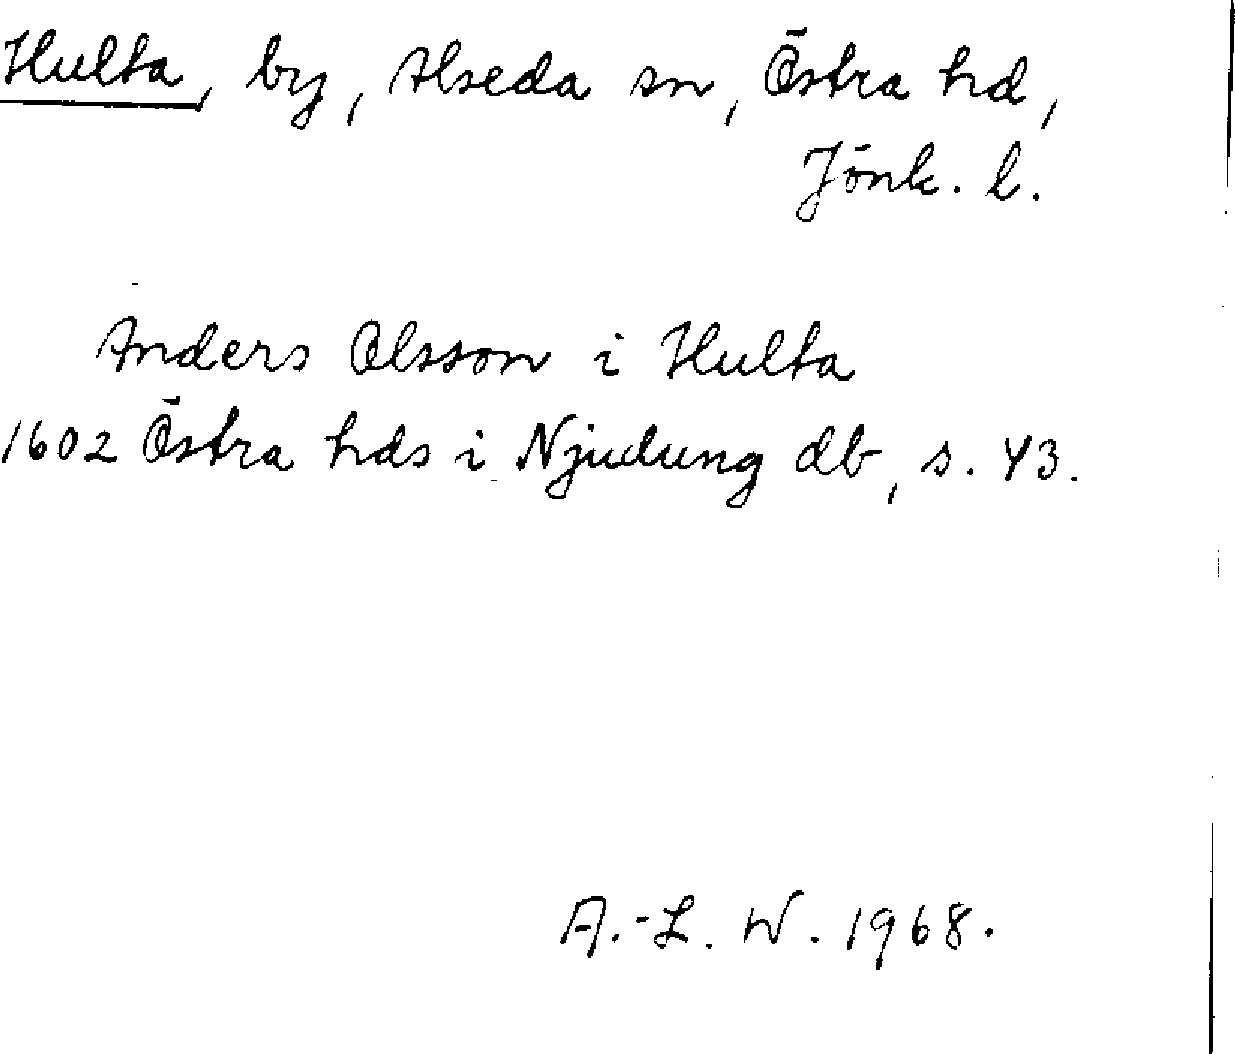 Hulta, by, Alseda sn, Östra hd,
Jönk. l.
Anders Olsson i Hulta
1602 Östra hds i Njudung db, s. 43.
A.-L. W. 1968.